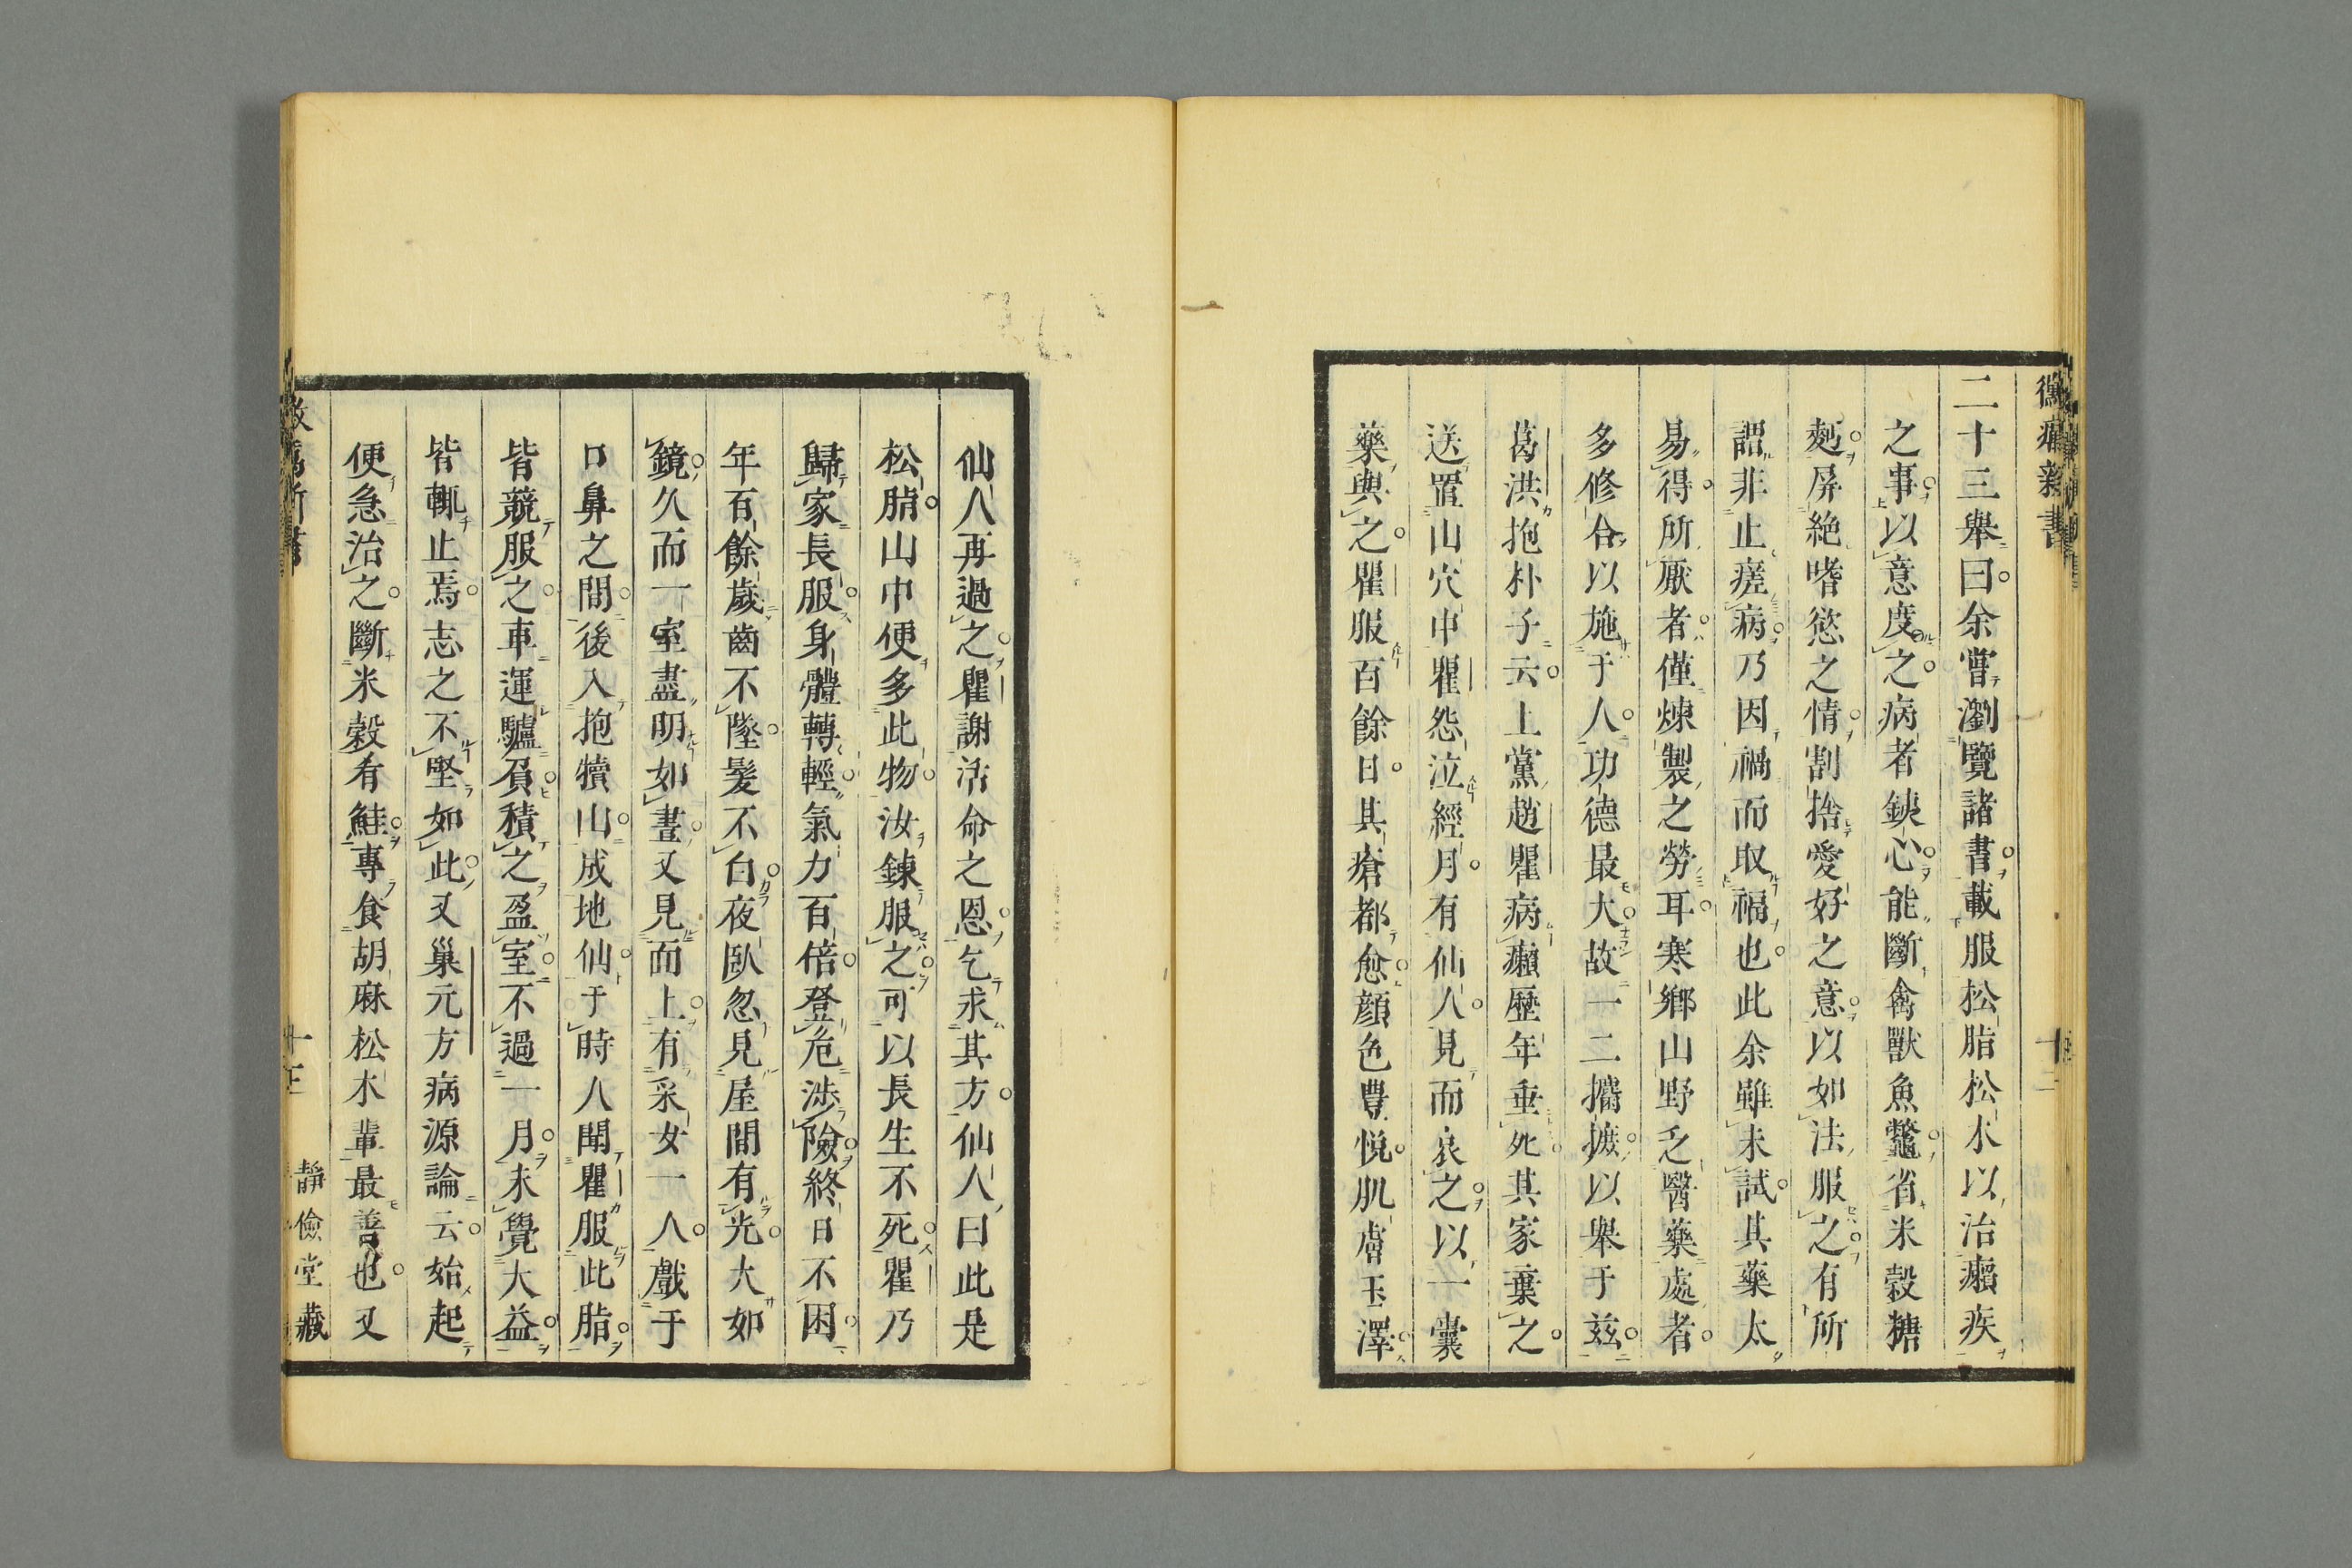 黴癘新書
二十三舉曰余嘗瀏覽諸書載服松脂松水以治癩疾
之事以意度之病者鐵心能斷禽獸魚鼈省米穀糖
麪屏絶嗜慾之情割捨愛好之意以如法服之有所
謂非止瘥病乃因禍而取福也此余雖未試其藥太
易得所厭者僅煉製之勞耳寒鄉山野乏醫藥處者
多修合以施于人功德最大故一二攟摭以舉于玆
葛洪抱朴子云上黨趙瞿病癩歷年垂死其家棄之
送置山穴中瞿怨泣經月有仙人見而哀之以一囊
藥與之瞿服百餘日其瘡都愈顔色豊悦肌膚玉澤
仙人再過之瞿謝活命之恩乞求其方仙人曰此是
松脂山中便多此物汝鍊服之可以長生不死瞿乃
歸家長服身體轉輕氣力百倍登危渉險終日不困
年百餘歲齒不墜髪不白夜臥忽見屋間有光大如
鏡久而一室盡明如晝又見面上有采女一人戲于
口鼻之間後入抱犢山成地仙于時人聞瞿服此脂
皆競服之車運驢負積之盈室不過一月未覺大益
皆輒止焉志之不堅如此又巢元方病源論云始起
便急治之斷米穀肴鮭專食胡麻松朮輩最善也又
靜儉堂藏